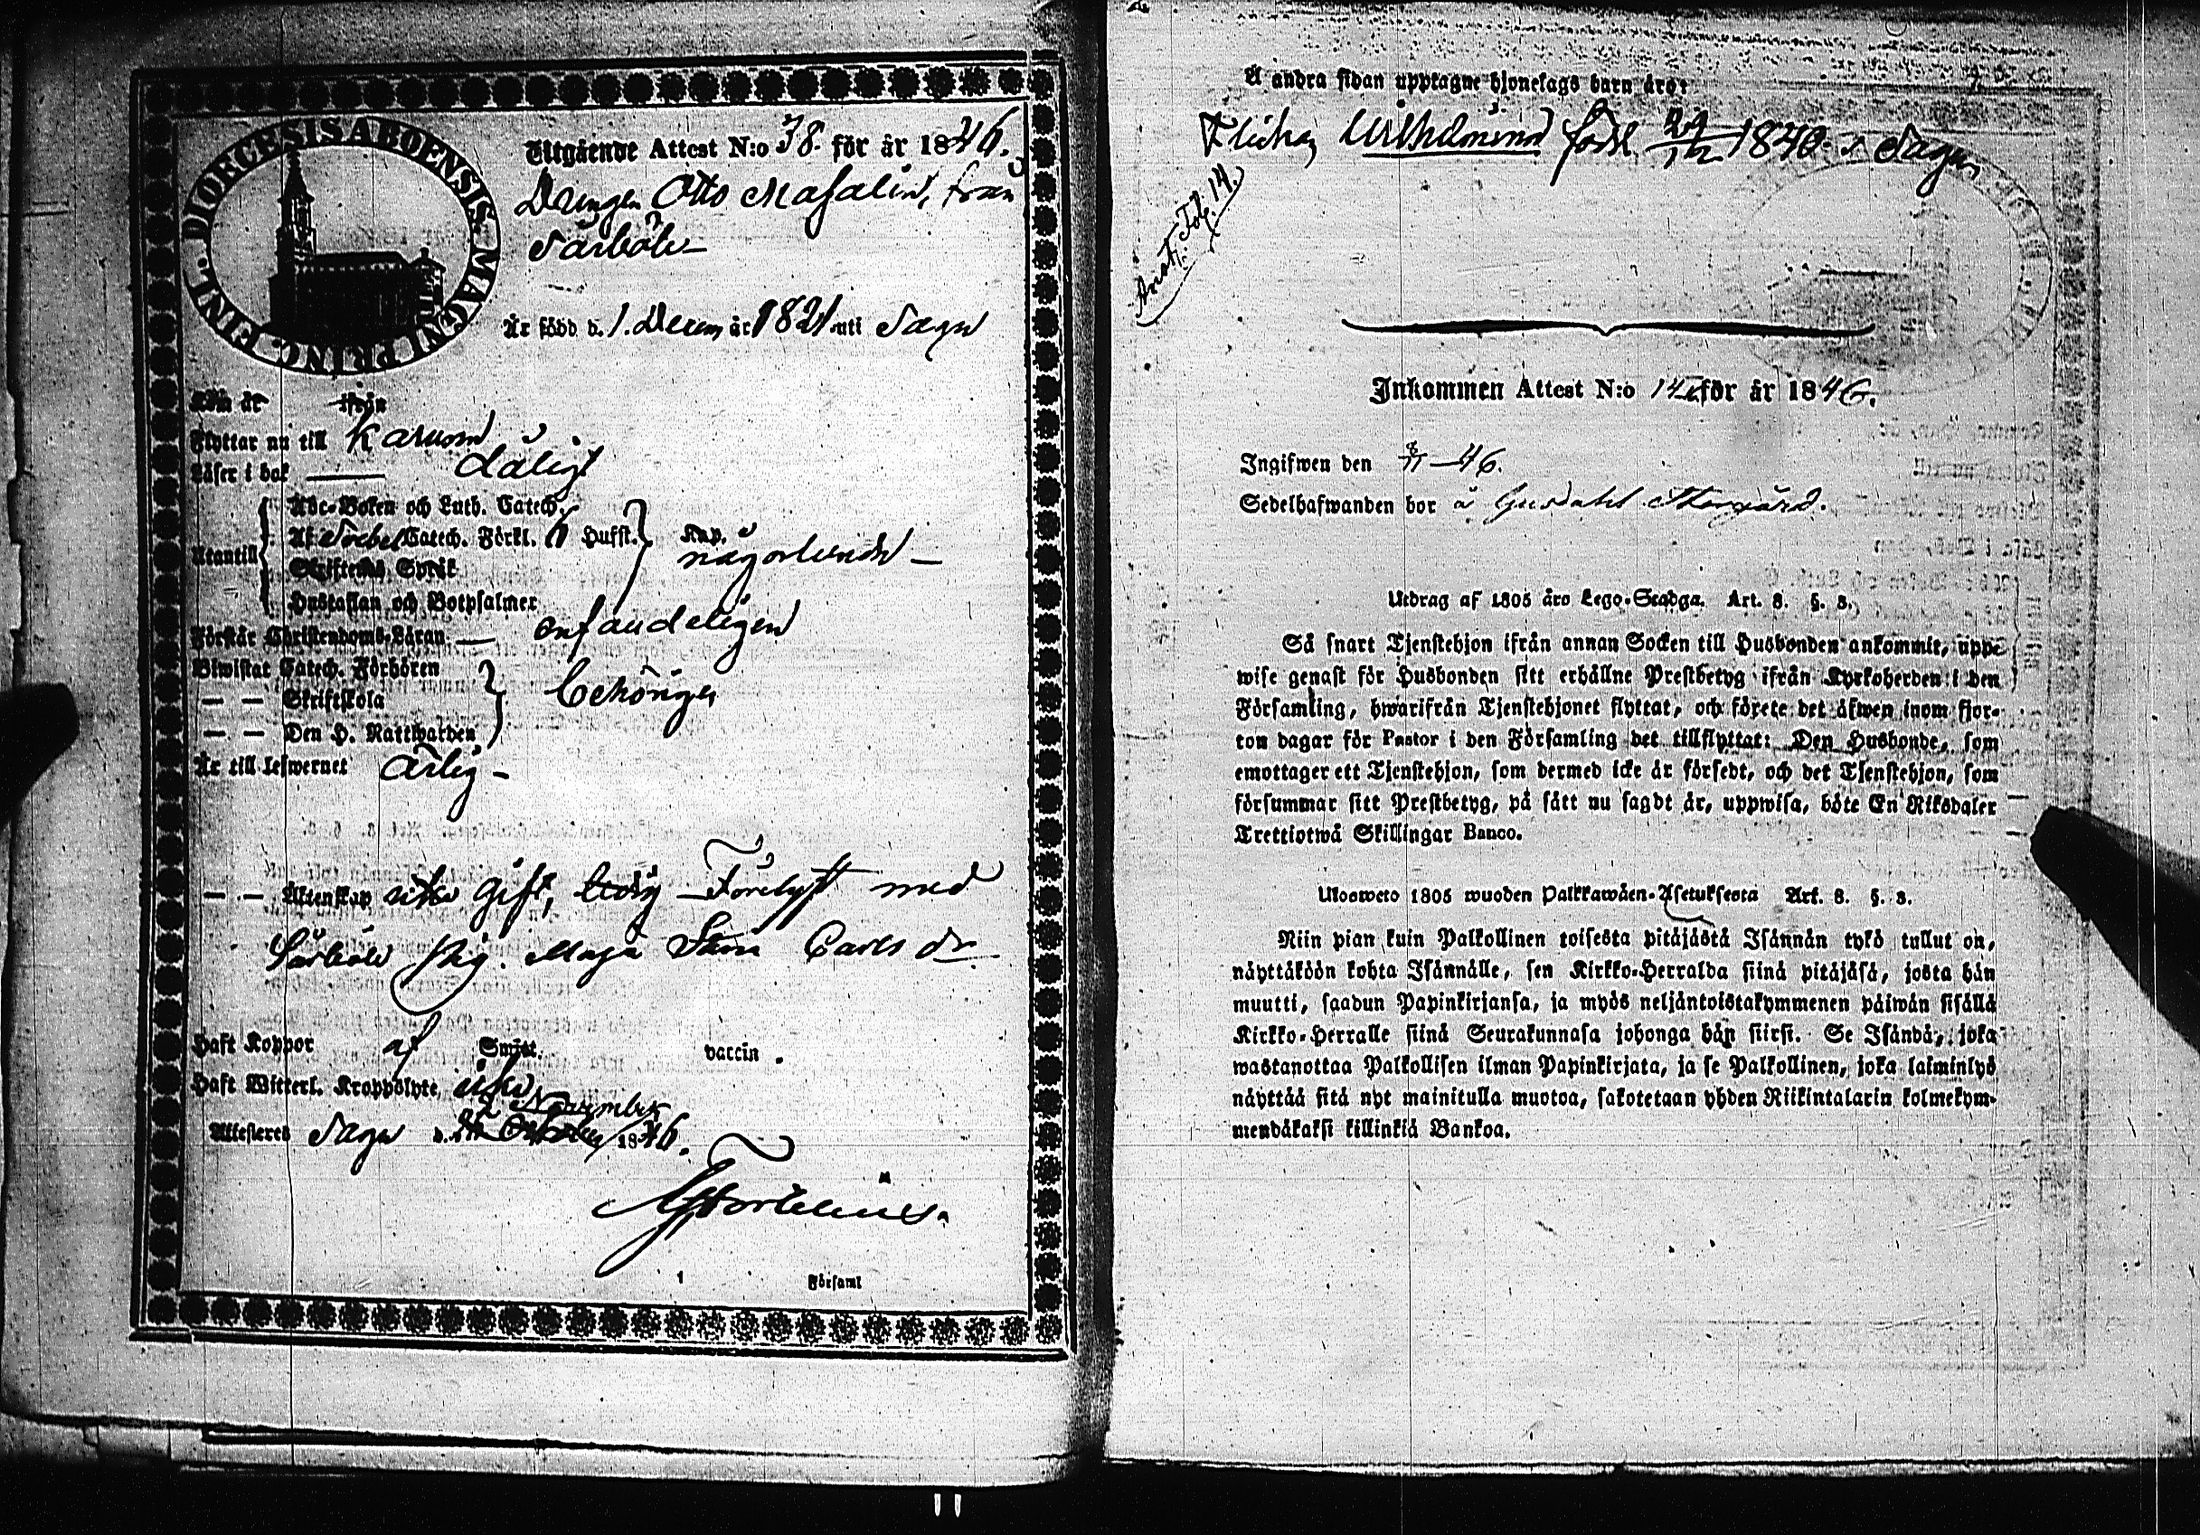 DIOECESIS ABOENSIS MAGNI PRINC. FINL.
Utgående Attest N:o 38. för år 1846.
Drengen Otto Masalin, från
Särböle
År född d. 1. Decem. år 1821 uti Sagu
Kön är ifrån
Flyttar nu till Karuna
Läser i bok dåligt
Abc-Boken och Luth. Catech.
Af Svebel Catech. Förkl. 6 Hufst. Kap.
Utantill någorlunda
Skriftens Språk
Hustaflan och Botpsalmer
Förstår Christendoms-Läran enfaudeligen
Biwistat Catech. Förhören
— — Skriftskola behörigen
— — Den H. Nattwarden
Är till Lefwernet ärlig
— — Äktenskap icke gift, ledig Förelyst med
Särböle pig. Maja Stina Carls dr
Haft Koppor af Smitt. vaccin.
Haft Witterl. Kroppslyte icke
2 November
Attesteras Sagu d. October 1846.
Församl
Å andra sidan upptagne hjonelags barn äro:
Flickan Wilhelmina född 24/12 1840 i Sagu
Fol. 14.
Inkommen Attest N:o 14 för år 1846.
Ingifwen den 8/11 46.
Sedelhafwanden bor å Storgård.
Utdrag af 1805 års Lego-Stadga. Art. 8. §. 3.
Så snart Tjenstehjon ifrån annan Socken till Husbonden ankommit, uppe
wise genast för Husbonden sitt erhållne Prestbetyg ifrån Kyrkoherden i den
Församling, hwarifrån Tjenstehjonet flyttat, och förete det äfwen inom fjor-
ton dagar för Pastor i den Församling det tillflyttat: Den Husbonde, som
emottager ett Tjenstehjon, som dermed icke är försedt, och det Tjenstehjon, som
försummar sitt Prestbetyg, på sätt nu sagdt är, uppwisa, böte En Riksdaler
Trettiotwå Skillingar Banco.
Ulosweto 1805 wuoden Palkkawäen-Asetuksesta Art. 8. §. 3.
Niin pian kuin Palkollinen toisesta pitäjästä Isännän tykö tullut on,
näyttäköön kohta Isännälle, sen Kirkko-Herralda siinä pitäjäsä, josta hän
muutti, saadun Papinkirjansa, ja myös neljäntoistakymmenen päiwän sisällä
Kirkko-Herralle siinä Seurakunnasa johonga hän siirsi. Se Isändä, joka
wastanottaa Palkollisen ilman Papinkirjata, ja se Palkollinen, joka laiminlyö
näyttää sitä nyt mainitulla muotoa, sakotetaan yhden Riikintalarin kolmekym-
mendäkaksi killinkiä Bankoa.